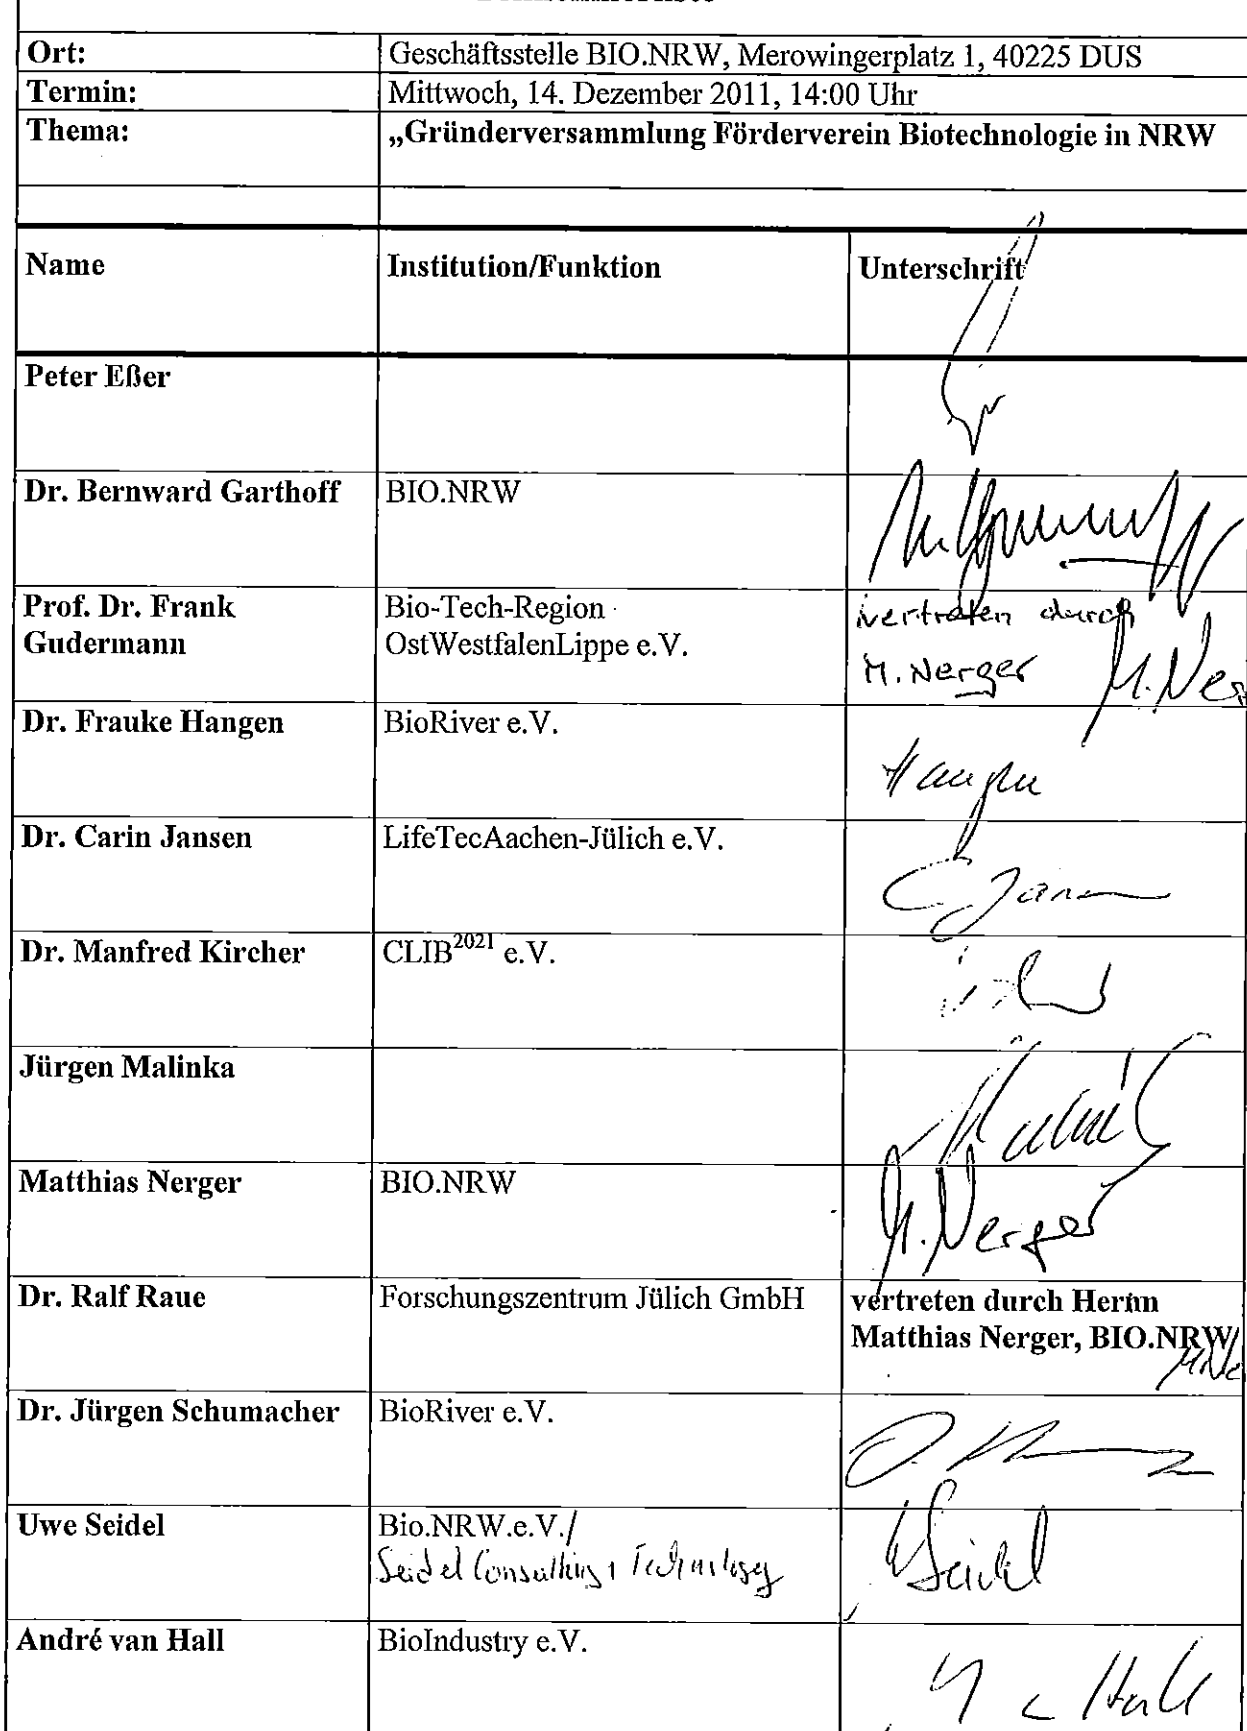 Ort: Geschäftsstelle BIO.NRW, Merowingerplatz 1, 40225 DUS
Termin: Mittwoch, 14. Dezember 2011, 14:00 Uhr
Thema: „Gründerversammlung Förderverein Biotechnologie in NRW
Name Institution/Funktion Unterschrift
Peter Eßer
Dr. Bernward Garthoff BIO.NRW
Prof. Dr. Frank Bio-Tech-Region vertreten durch
Gudermann OstWestfalenLippe e.V. M. Nerger M. Ner
Dr. Frauke Hangen BioRiver e.V. Hangen
Dr. Carin Jansen LifeTecAachen-Jülich e.V. C Jansen
Dr. Manfred Kircher CLIB²⁰²¹ e.V.
Jürgen Malinka
Matthias Nerger BIO.NRW M. Nerger
Dr. Ralf Raue Forschungszentrum Jülich GmbH vertreten durch Herrn
Matthias Nerger, BIO.NRW
Dr. Jürgen Schumacher BioRiver e.V.
Uwe Seidel Bio.NRW.e.V./ Seidel
Seidel Consulting + Technology
André van Hall BioIndustry e.V. Hall